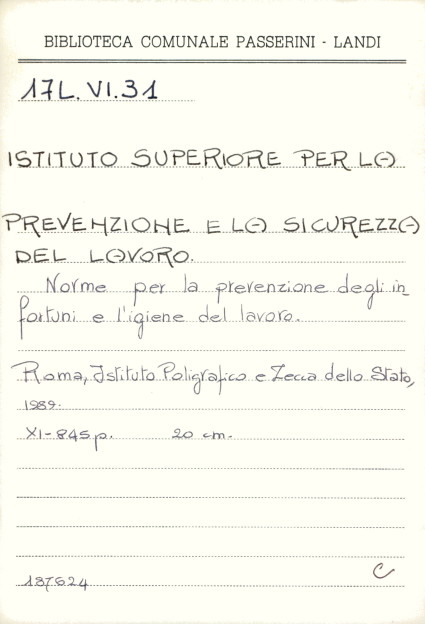 BIBLIOTECA COMUNALE PASSERINI - LANDI
17L.VI.31
ISTITUTO SUPERIORE PER LA
PREVENZIONE E LA SICUREZZA
DEL LAVORO.
Norme per la prevenzione degli in_
fortuni e l'igiene del lavoro.
Roma, Istituto Poligrafico e Zecca dello Stato,
1989.
XI-845p. 20 cm.
137624 C